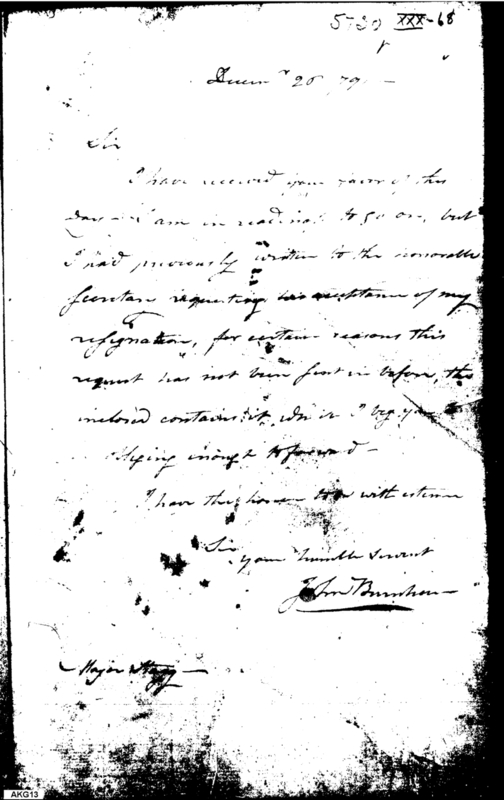 5720 XXX-68
Decemr 26 79
Sir
I have received your favor of this
day - I am in readiness to go on, but
I had previously written to the honorable
Secretary requesting his acceptance of my
resignation, for certain reasons this
request has not been sent in before, the
inclosed contains it, which I beg you
obliging enough to forward -
I have the honor to be with esteem
Sir
your humble servant
John Burnham
Major Stagg
AKG13